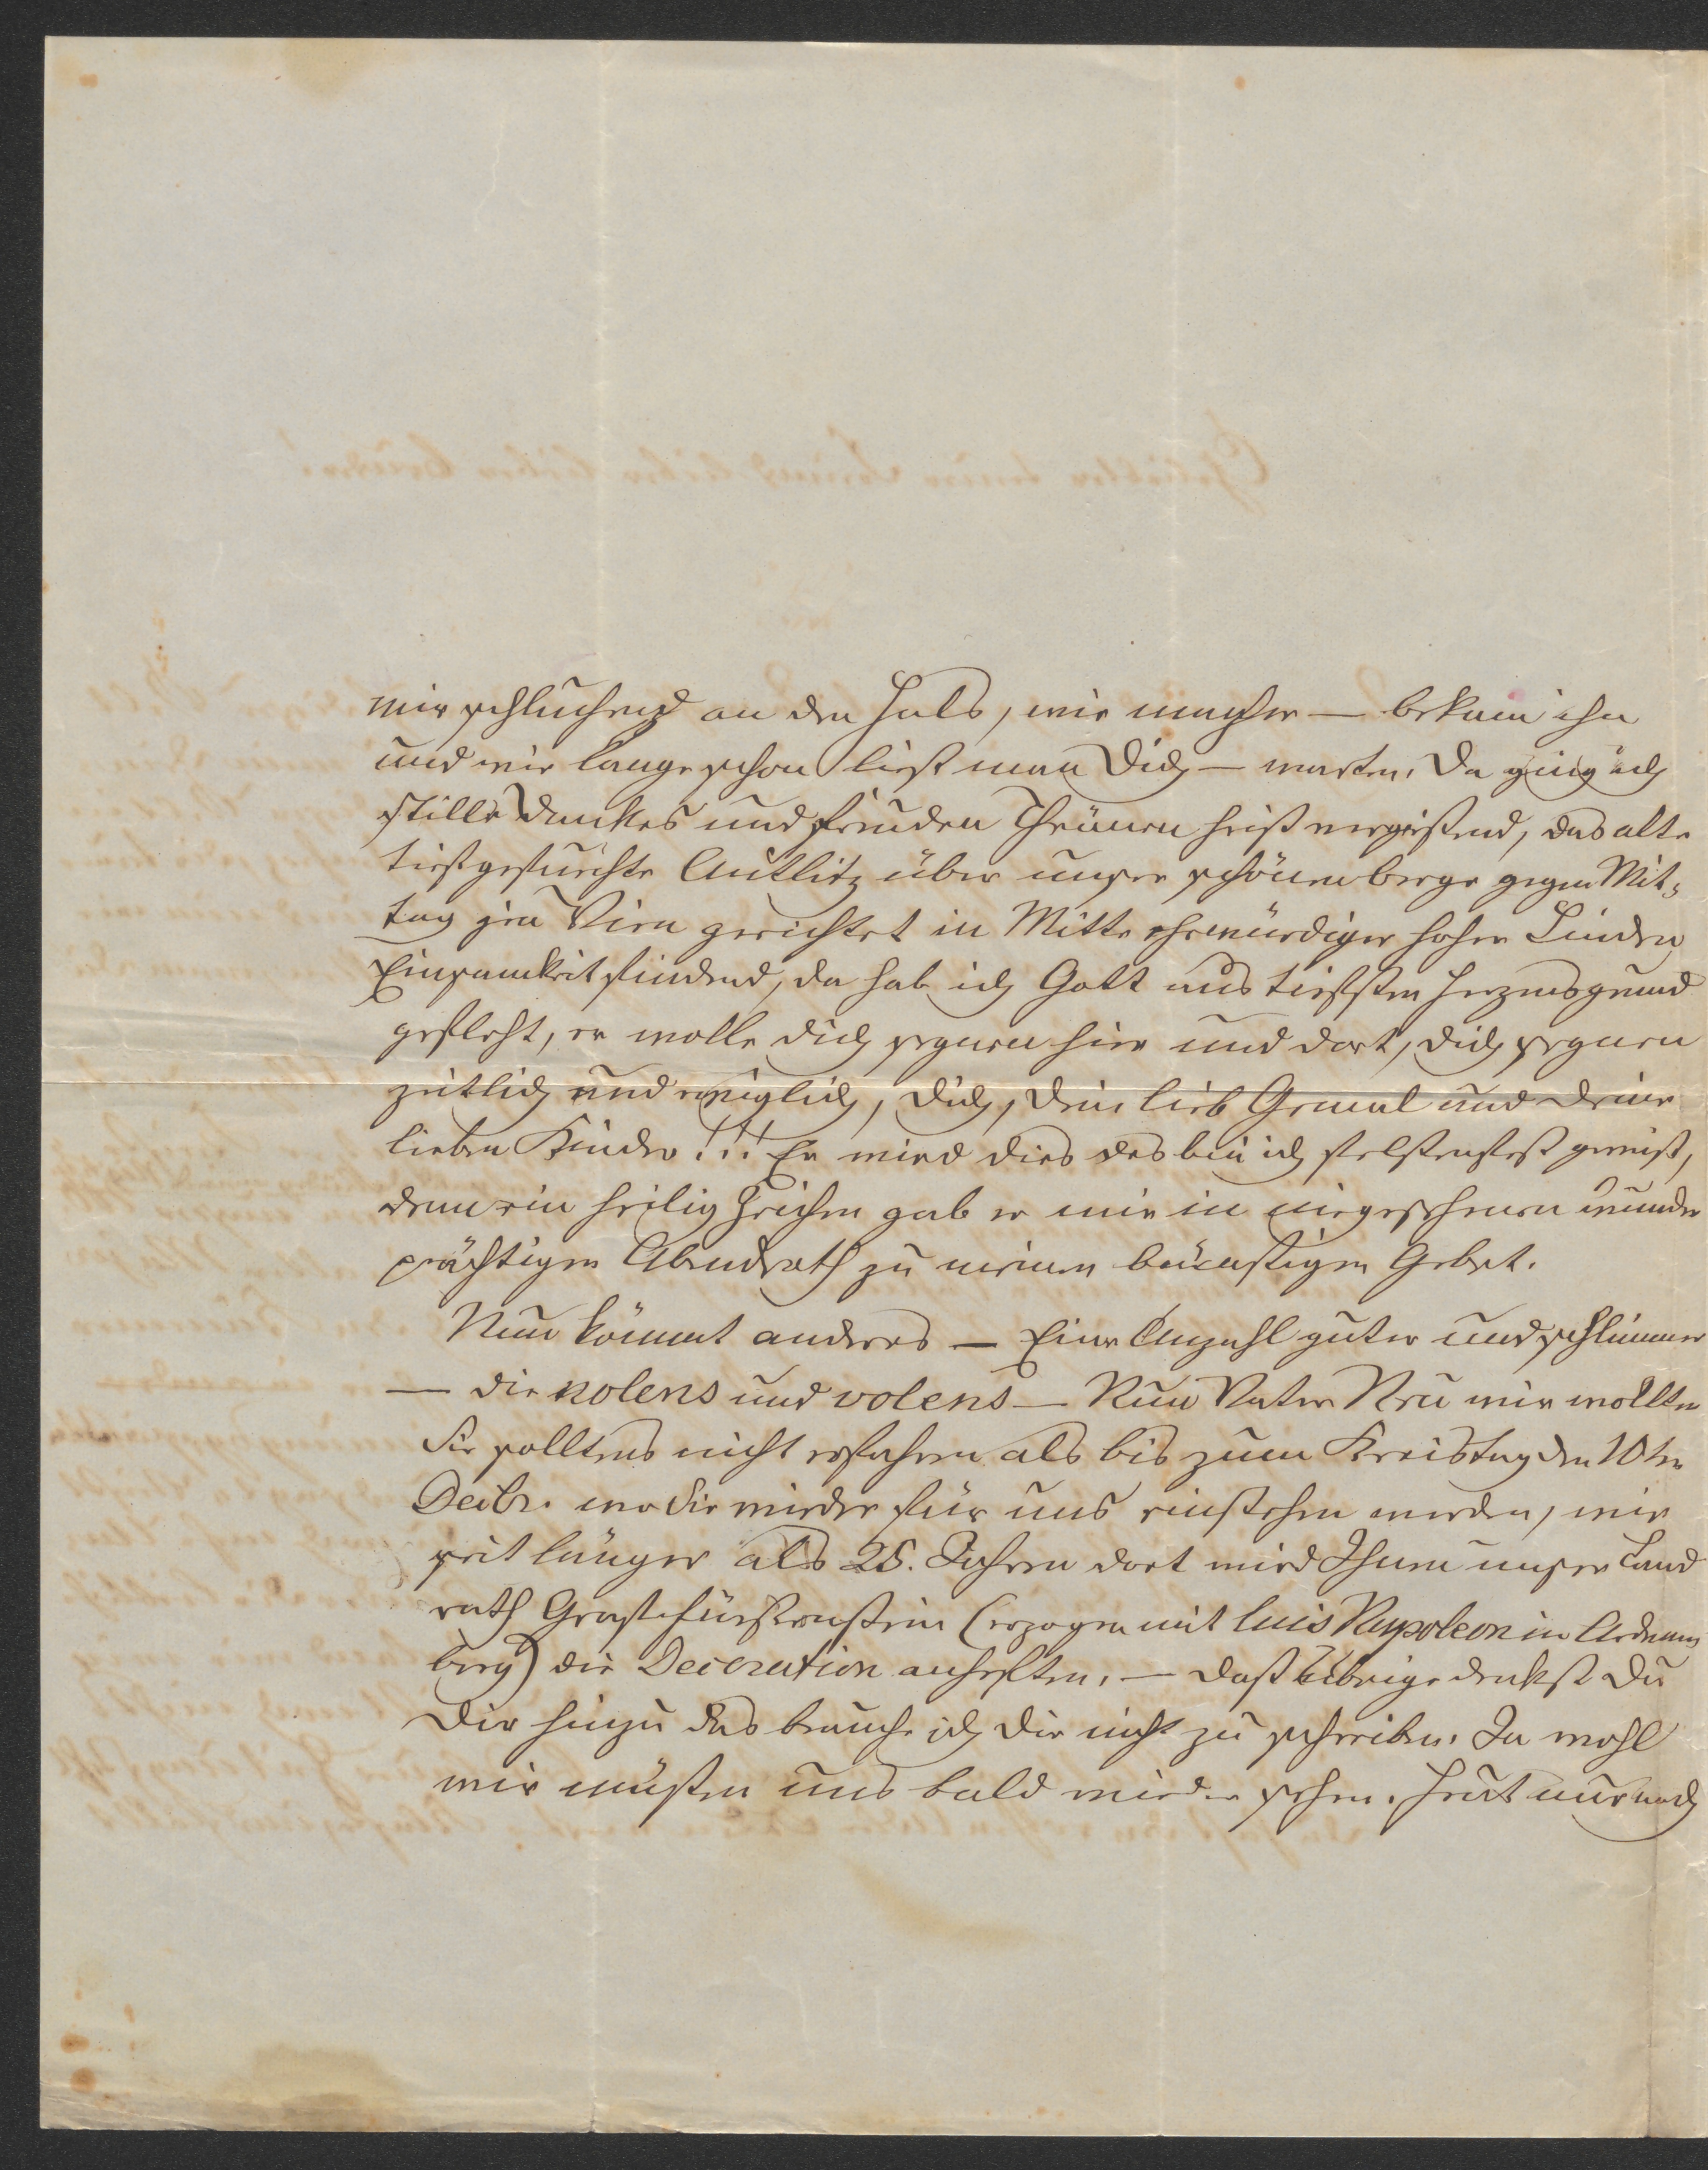 mir schluchend an den Hals, wie mancher — bekam ihn
und wie lange schon ließt man Dich — warten. Da ging ich
stille Dankes und Freuden Thränen heiß vergißend, das alte
tiefgefurchte Antlitz über unsere schönen Berge gegen Mit-
tag gen Wien gerichtet in Mitte ehrwürdiger hoher Linden
Einsamkeit findend, da hab ich Gott aus tiefsten Herzensgrund
gefleht, er wolle Dich segnen hier und dort, Dich segnen
zeitlich und ewiglich, Dich, Dein lieb Gemal und Deine
lieben Kinder!!! Er wird dies des bin ich felsenfest gewiß,
denn ein heilig Zeichen gab er mir in niegesehenen wunder
prächtigen Abendroth zu meinen brünstigen Gebet.
Nun kömmt anderes — Eine Anzahl guter und schlimmer
— die nolens und volens — Nun Vater Neu wir wollten
Sie solltens nicht erfahren als bis zum Kreistag den 10ten
Decbr. wo Sie wieder für uns einstehen werden, wie
seit länger als 25. Jahren dort wird Ihnen unser Land
rath Graf Fürstenstein (erzogen mit Luis Napoleon in Arenen
berg) die Decoration anheften. — Daß Übrige denkst Du
Dir hinzu das brauche ich Dir nicht zu schreiben. Ja wohl
wir müßen uns bald wieder sehen. Heut nur noch